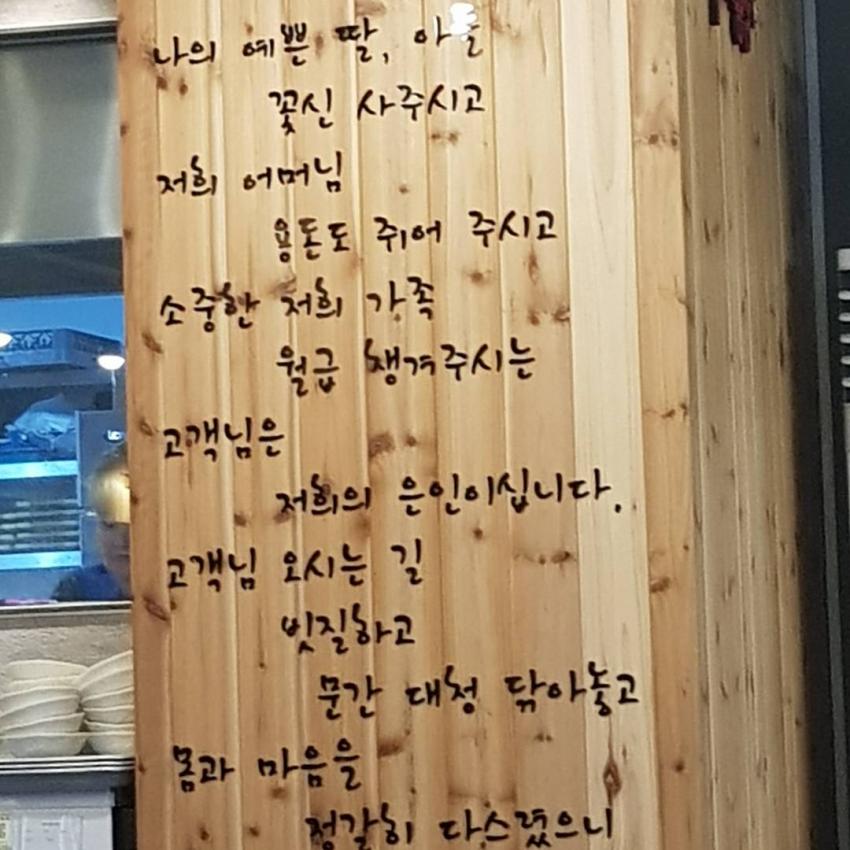 나의 예쁜 딸, 아들
꽃신 사주시고
저희 어머님
용돈도 쥐어 주시고
소중한 저희 가족
월급 챙겨주시는
고객님은
저희의 은인이십니다.
고객님 오시는 길
빗질하고
문간 대청 닦아놓고
몸과 마음을
정갈히 다스렸으니